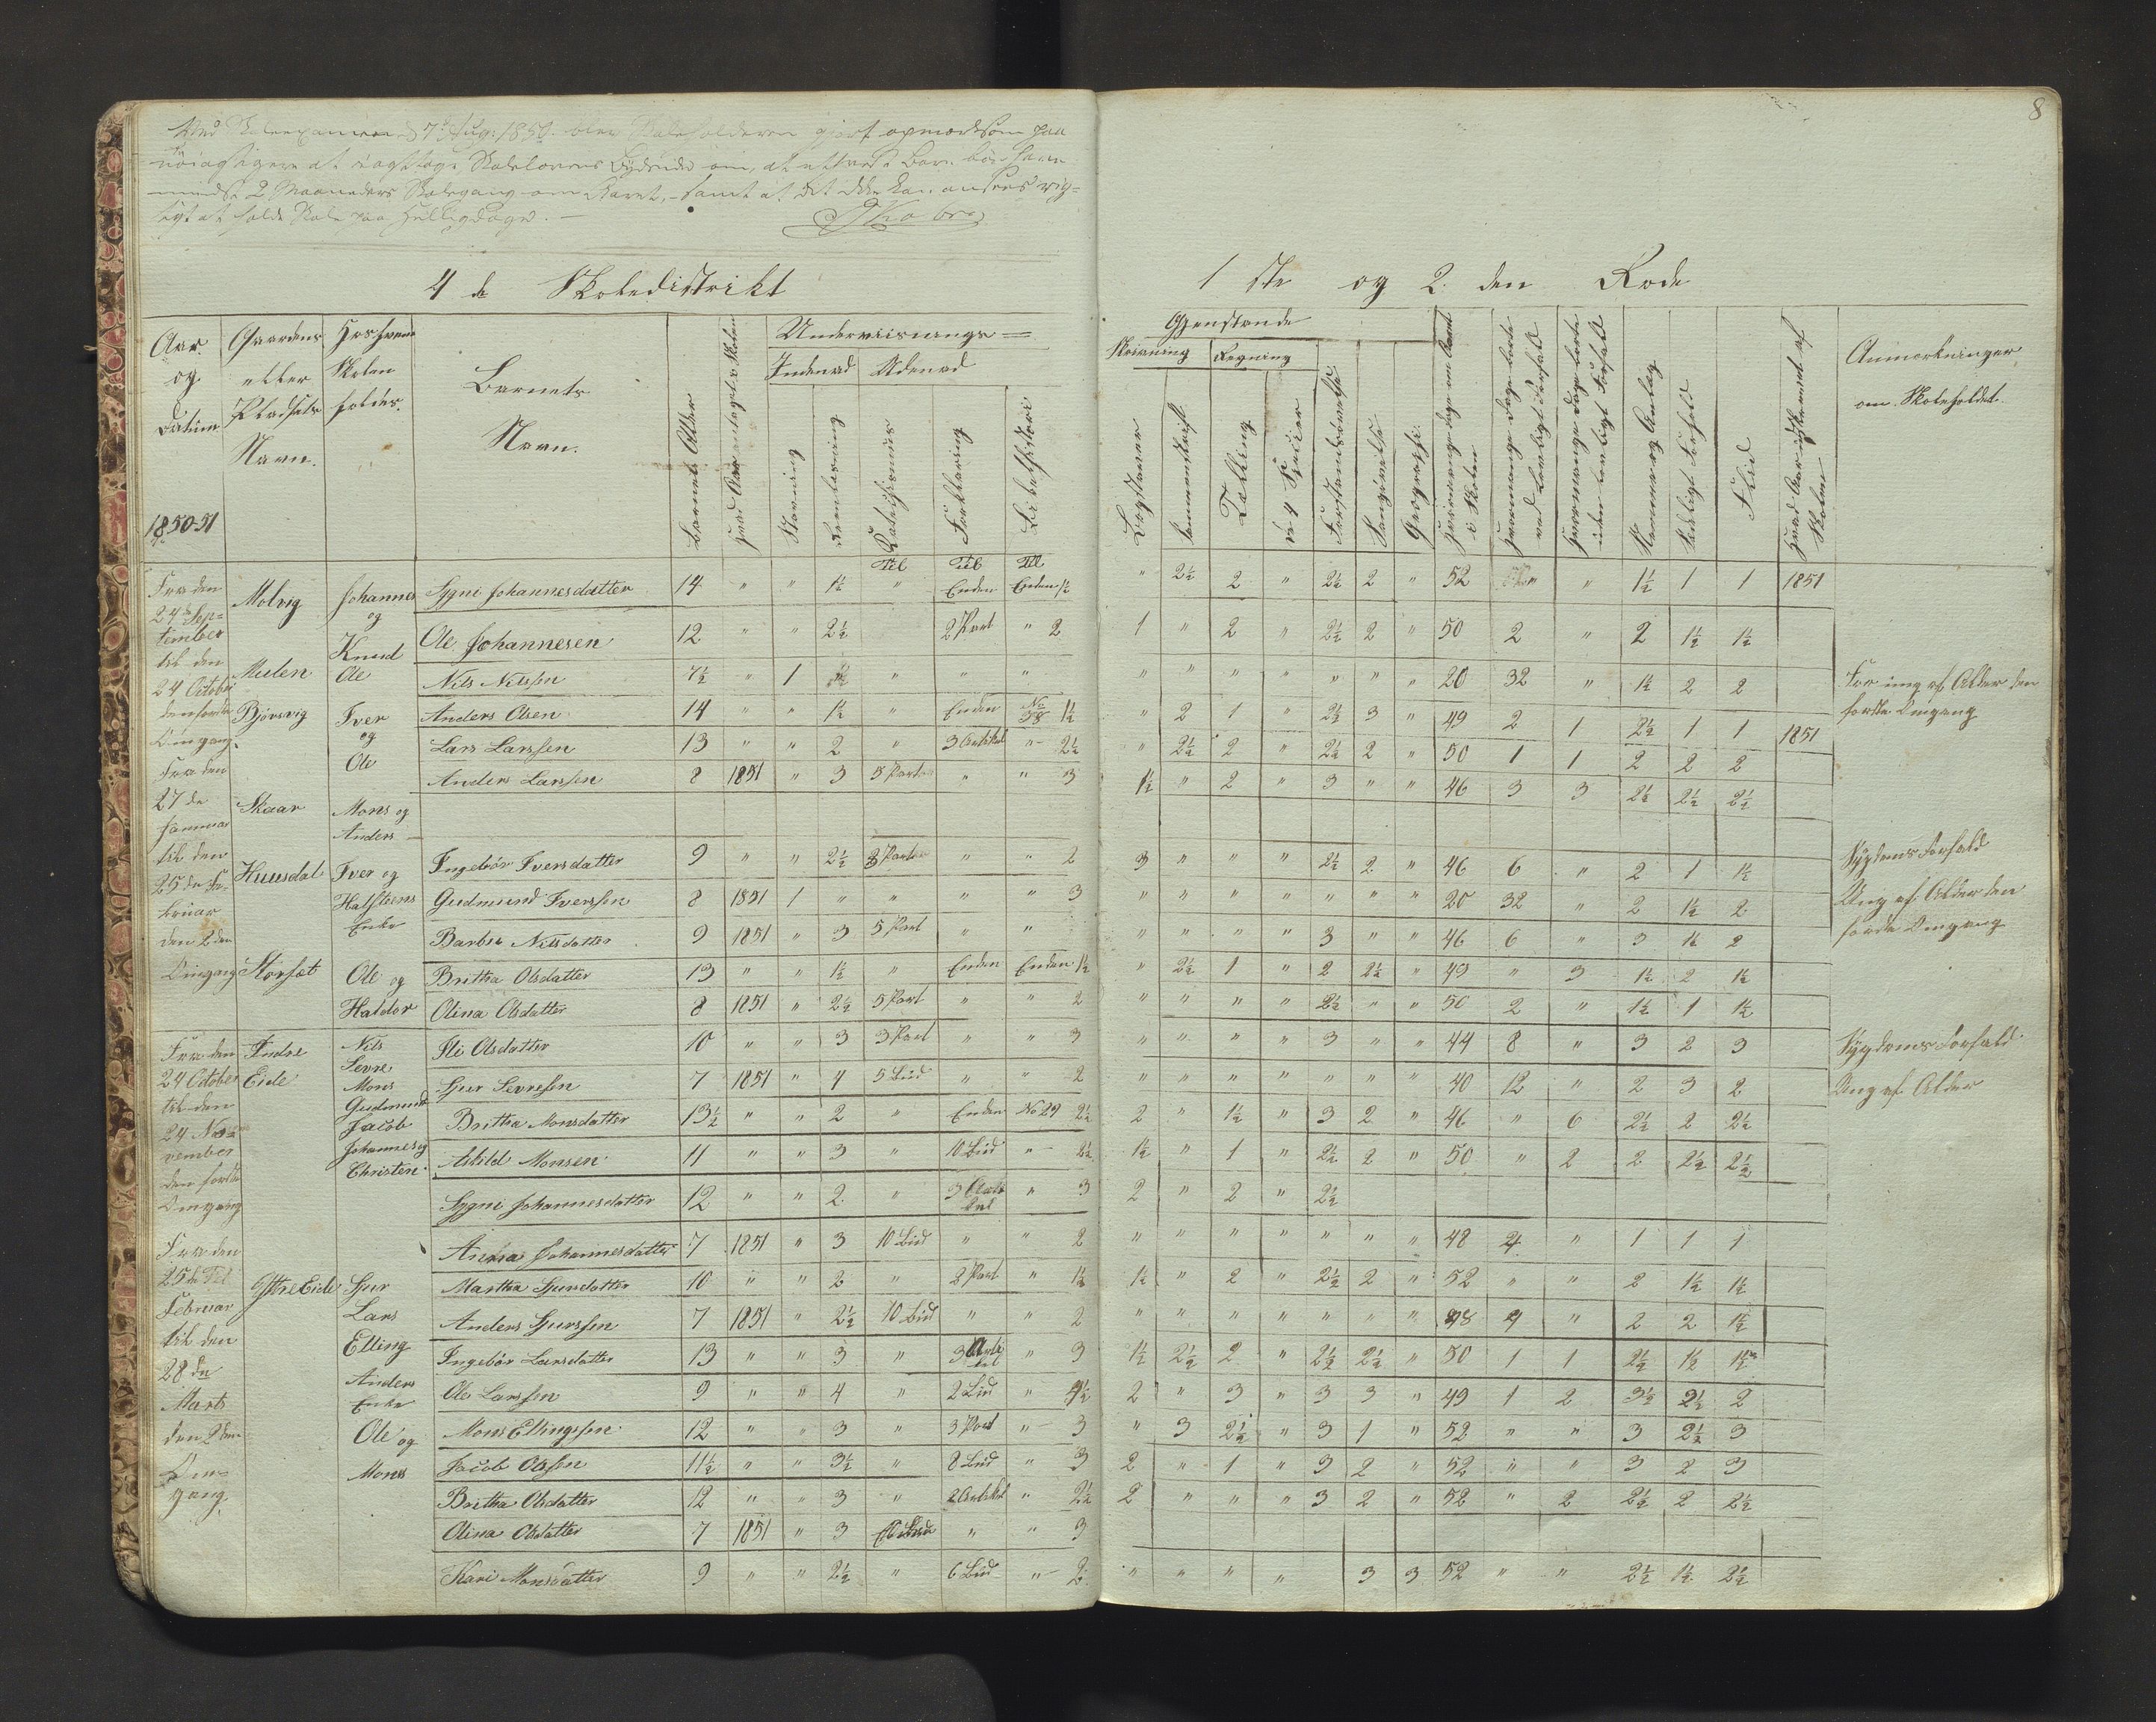 8
Ved Skoleexamen d. 7de Aug. 1850. blev Skoleholderen gjort opmærksom paa
nøiagtigere at iagttage Skolelovens Bydende om, at ethvert Barn bør have
mindst 2 Maaneders Skolegang om Aaret, - samt at det ikke kan ansees rig=
tigt at holde Skole paa Helligdage. -
4 de Skoledistrikt
1 ste og 2. den Rode
Aar og Datum
Gaardens eller Pladsets Navn.
Hos hvem Skolen holdes.
Barnets Navn.
Barnets Alder
Underviisnings=
Gjenstande
Indenad Udenad
Skrivning Regning
Stavning
Reenlæsning
Katechismus
Forklaring
Bibelhistorie
Bogstaver
Sammenskrift
Telling
de 4 Species
Forstandsøvelse
Sangøvelse
Geografi
Hvormange Dage om Aaret i Skolen
Hvormange Dage borte ved lovligt Forfald
Hvormange Dage borte uden lovligt Forfald
Nemme og Anlæg
Sædeligt Forhold
Flid
Hvad Aar udskrevet af Skolen
Anmærkninger om Skoleholdet.
1850-51
Til Til Til
Fra den 24de September til den 24 October den første Omgang.
Fra den 27de Januar til den 25de Februar den 2den Omgang
Molvig Johannes og Knud
Sygni Johannesdatter 14 " " 1½ " Enden Enden 1½ " 2½ 2 " 2½ 2 " 52 " 1½ 1 1 1851
Ole Johannesen 12 " " 2½ 2 Part " 2 1 " 2 " 2½ 2 " 50 2 " 2 1½ 1½
Mulen Ole
Nils Nilssen 7½ " 1 " " " " " " " " " " 20 32 " 1½ 2 2 For ung af Alder den første Omgang
Bjørsvig Iver og Ole
Anders Olsen 14 " " 1½ " Enden No 38 1½ " 2 1 " 2½ 3 " 49 2 1 2½ 1 1 1851
Lars Larssen 13 " " 2 " 3 Artikel " 2½ " 2½ 2 " 2½ 2 " 50 1 1 2 2 2
Anders Larssen 8 1851 " 3 5 Parter " " 3 1½ " 2 " 3 " " 46 3 3 2½ 2½ 2½
Skaar Mons og Anders
Huusdal Iver og Halsteens Enke
Ingebør Iversdatter 9 " " 2½ 3 Parter " " 2 3 " " " 2½ 2 " 46 6 " 2 1 1½ Sygdoms Forfald
Gudmund Iverssen 8 1851 1 " " " " 3 " " " " " " " 20 32 " 2 1½ 2 Ung af Alder den første Omgang
Barbra Nilsdatter 9 1851 " 3 5 Part " " " " " " 3 " " 46 6 " 3 1½ 2
Storsæt Ole og Haldor
Brittha Olsdatter 13 " " 1½ " Enden Enden 1½ " 2½ 1 " 2 2½ " 49 " 3 1½ 2 1½
Olina Olsdatter 8 1851 " 2½ 5 Part " " 2 " " " " 2½ " " 50 2 " 1½ 1 1½
Fra den 24 October til den 24 November den første Omgang
Fra den 25de Februar til den 28de Marts den 2den Omgang.
Indre Eide Nils Sevre Mons Gudmund Jacob Johannes og Christen
Sli Olsdatter 10 " " 3 3 Part " " 3 " " " " 3 " " 44 8 " 3 2 3 Sygdoms Forfald
Sjur Sevresen 7 1851 " 4 5 Bud " " 2 " " " " " " " 40 12 " 2 3 2 Ung af Alder
Brittha Monsdatter 13½ " " 2 " Enden No 29 2½ 2 " 1½ " 3 2 " 46 " 6 2½ 2 2½
Askild Monsen 11 " " 3 " 10 Bud " 2½ 1½ " 1 " 2½ 2 " 50 " 2 2 2½ 2½
Sygni Johannesdatter 12 " " 2 " 3 Artikel " 3 2 " 2 " 2½
Andrea Johannesdatter 7 1851 " 3 10 Bud " " 2 " " " " " " " 48 4 " 1 1 1
Ytre Eide Sjur Lars Elling Anders Enke Ole og Mons
Martha Sjursdatter 10 " " 2 " 2 Part " 1½ 1½ " 2 " 2½ 2 " 52 " " 2 1½ 1½
Anders Sjurssen 7 1851 " 2½ 10 Bud " " 2 " " " " " " " 48 4 " 2 2 1½
Ingebør Larsdatter 13 " " 3 " 3 Artikel " 3 1½ 2½ 2 " 2½ 2½ " 50 1 1 2½ 1½ 1½
Ole Larssen 9 " " 4 " 2 Bud " 4½ 2 " 3 " 3 3 " 49 1 2 3½ 2½ 2
Mons Ellingssen 12 " " 3 " 3 Part " 3 " 3 2½ " 3 1 " 52 " " 3 2½ 3
Jacob Olssen 11½ " " 3½ " 8 Bud " 3 2 " 1 " 3 2 " 52 " " 3 2 3
Brittha Olsdatter 12 " " 3 " 2 Artikel " 2½ 2 " " " 3 2 " 52 " 2 2½ 2 2½
Olina Olsdatter 7 1851 " 3 " " 3
Kari Monsdatter 9 " " 2½ " 6 Bud " 2 " " " " 3 3 52 " " 2½ 1½ 2½